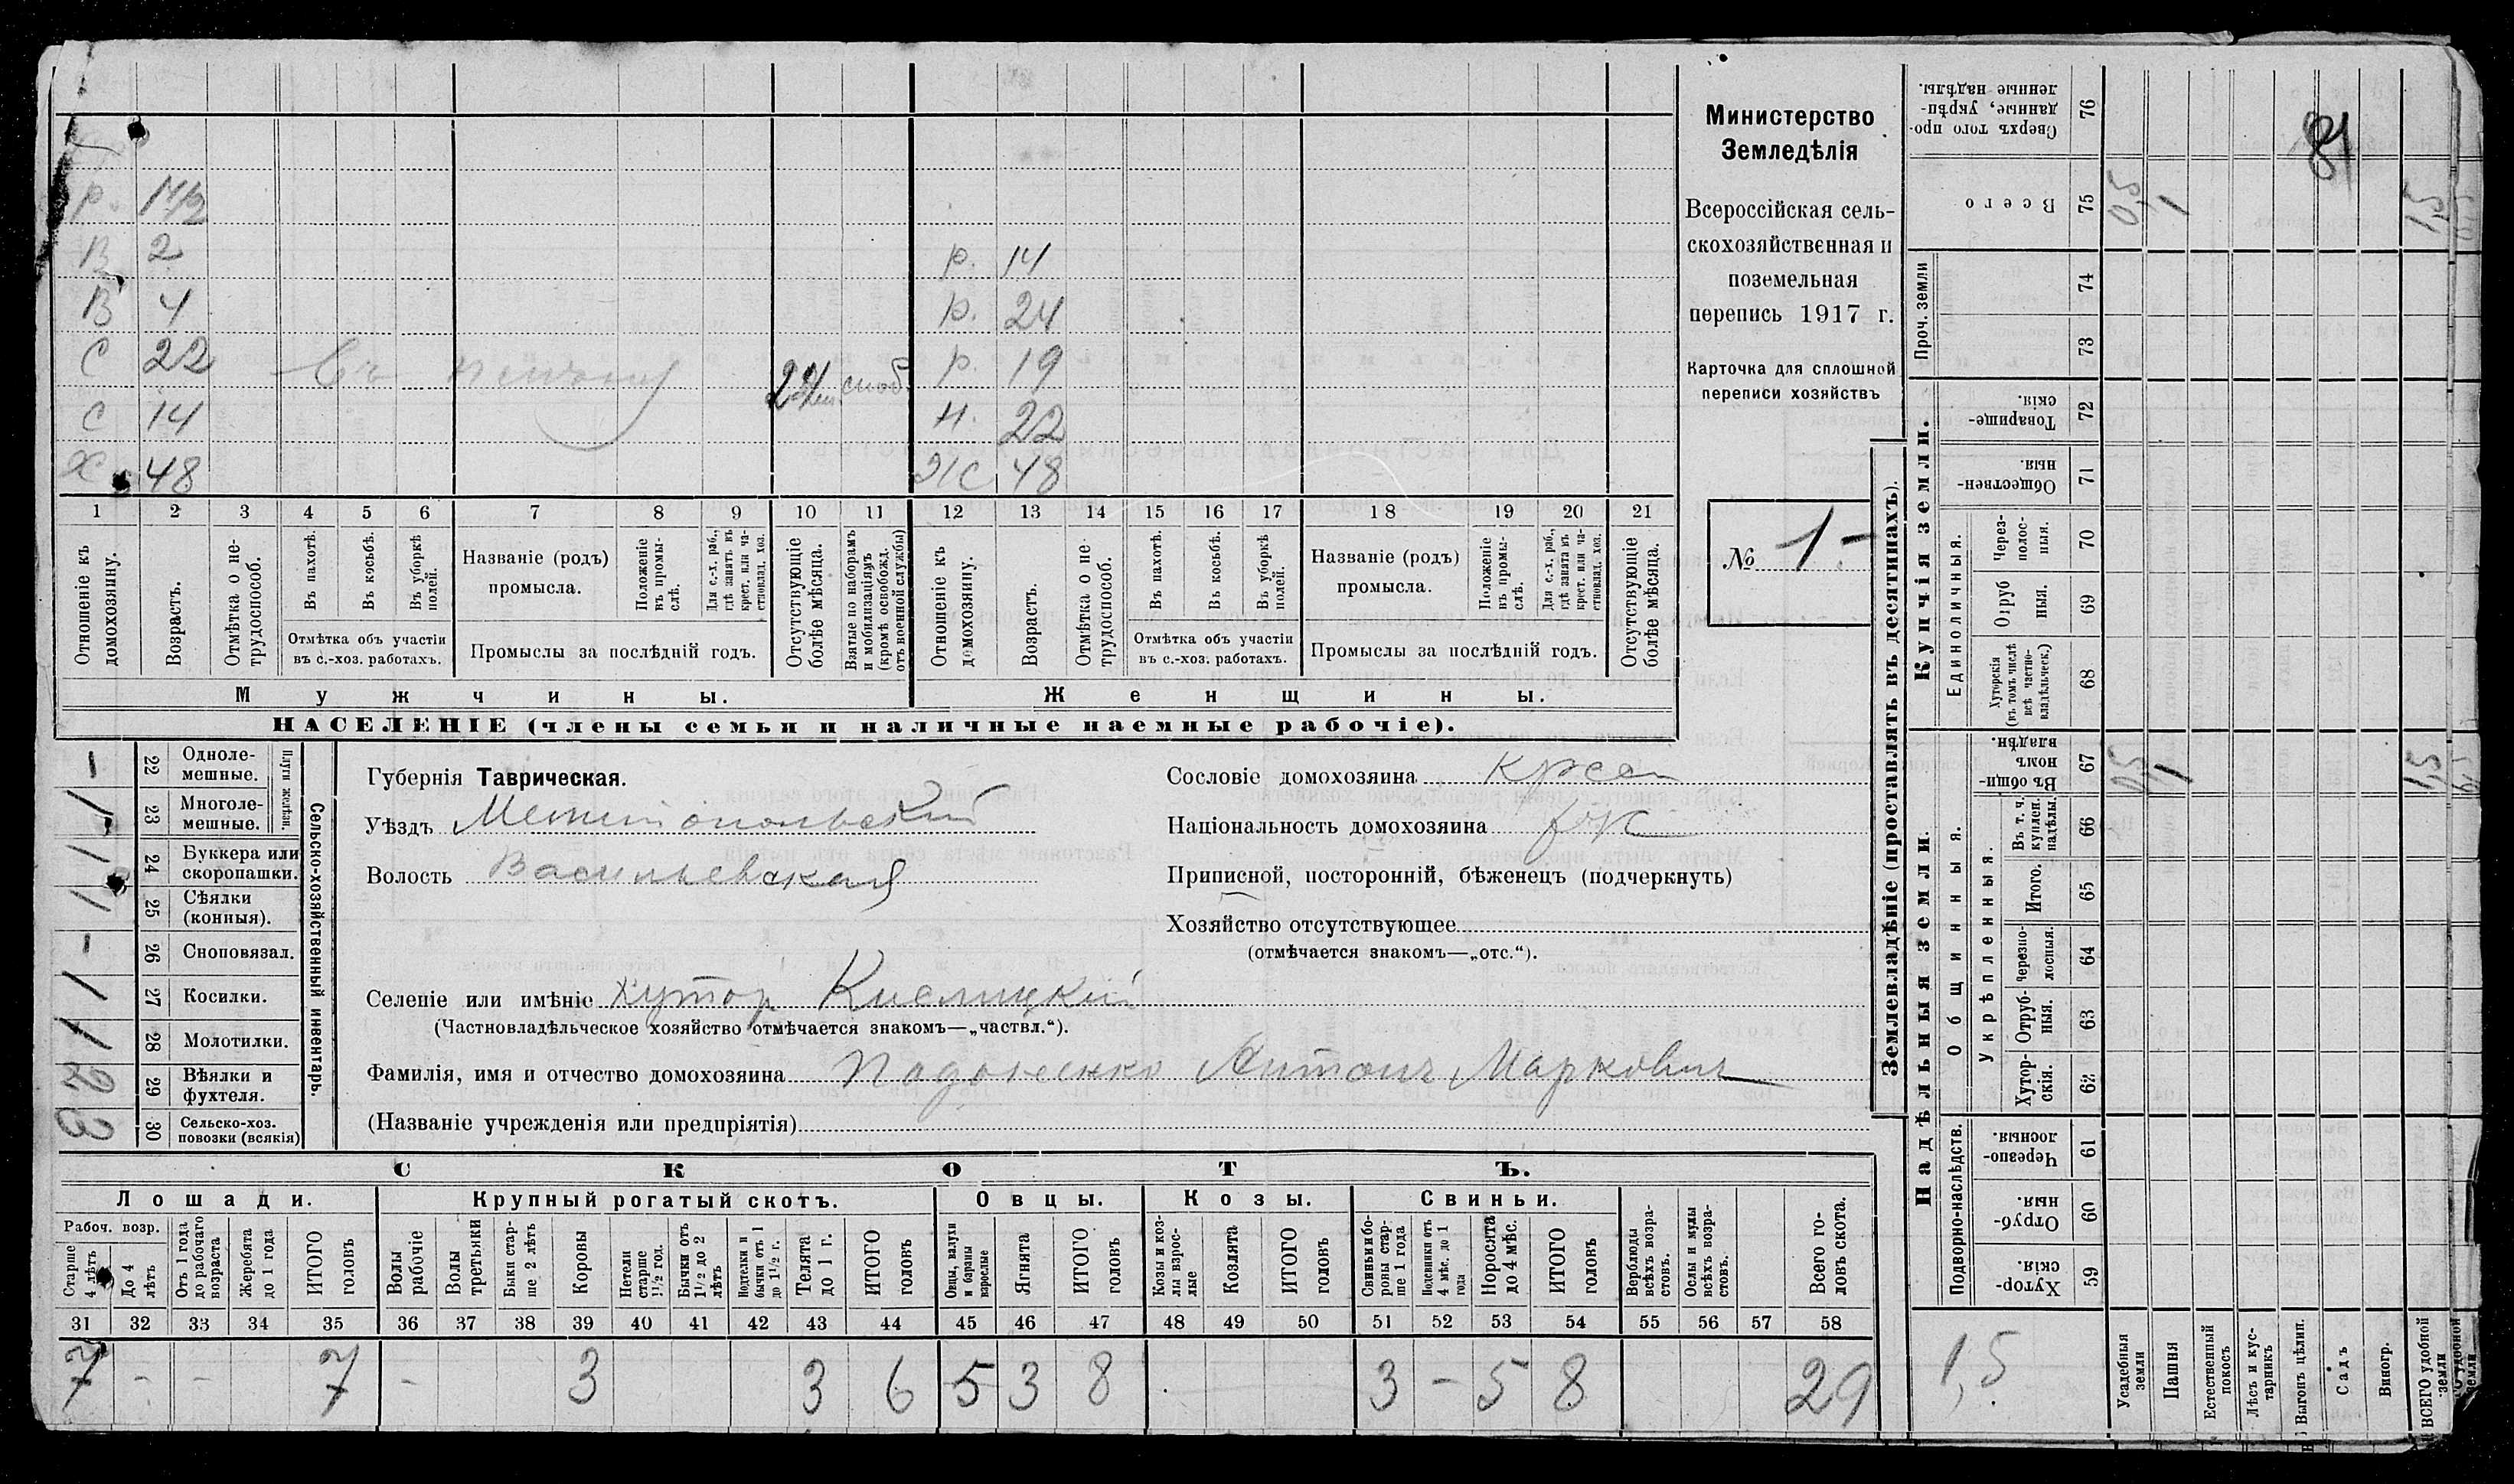 84
Министерство
Земледѣлія
Всероссійская сель-
скохозяйственная и
поземельная
перепись 1917 г.
Карточка для сплошной
переписи хозяйствъ
№ 1-
В 2 р. 14
В 4 р. 24
С 22 р. 19
С 14 Н. 22
Х 48 Ж 48
1 2 3 4 5 6 7 8 9 10 11 12 13 14 15 16 17 18 19 20 21
Отношеніе къ домохозяину.
Возрастъ.
Отмѣтка о не- трудоспособ.
Въ пахотѣ.
Въ косьбѣ.
Въ уборкѣ полей.
Отмѣтка объ участіи въ с.-хоз. работахъ.
Названіе (родъ) промысла.
Положеніе въ промы- слѣ.
Для с.-х. раб., гдѣ занятъ въ крест. или ча- стновлад. хоз.
Промыслы за послѣдній годъ.
Отсутствующіе болѣе мѣсяца.
Взятые по наборамъ и мобилизаціямъ (кромѣ освобожд. отъ военной службы)
Отношеніе къ домохозяину.
Возрастъ.
Отмѣтка о не трудоспособ.
Въ пахотѣ.
Въ косьбѣ.
Въ уборкѣ полей.
Отмѣтка объ участіи въ с.-хоз. работахъ.
Названіе (родъ) промысла.
Положеніе въ промы- слѣ.
Для с.-х. раб., гдѣ занята въ крест. или ча- стновлад. хоз.
Промыслы за послѣдній годъ.
Отсутствующіе болѣе мѣсяца.
Мужчины. Женщины.
НАСЕЛЕНІЕ (члены семьи и наличные наемные рабочіе).
Сельско-хозяйственный инвентарь.
Плуги желѣзн.
- 22 Одноле- мешные.
1 23 Многоле- мешные.
1 24 Буккера или скоропашки.
1 25 Сѣялки (конныя).
- 26 Сноповязал.
1 27 Косилки.
1 28 Молотилки.
2 29 Вѣялки и фухтеля.
3 30 Сельско-хоз. повозки (всякія)
Губернія Таврическая.
Уѣздъ Мелитопольский
Волость Васильевская
Селеніе или имѣніе хутор Кислицкий
(Частновладѣльческое хозяйство отмѣчается знакомъ—„частвл.“).
Фамилія, имя и отчество домохозяина Антонъ Маркович
(Названіе учрежденія или предпріятія)
Сословіе домохозяина крест
Національность домохозяина
Приписной, посторонній, бѣженецъ (подчеркнуть)
Хозяйство отсутствующее
(отмѣчается знакомъ—„отс.“).
СКОТЪ.
Лошади. Крупный рогатый скотъ. Овцы. Козы. Свиньи.
Рабоч. возр.
Старше 4 лѣтъ
До 4 лѣтъ
Отъ 1 года до рабочаго возраста
Жеребята до 1 года
ИТОГО головъ
Волы рабочіе
Волы третьяки
Быки стар- ше 2 лѣтъ
Коровы
Нетели старше 1½ год.
Бычки отъ 1½ до 2 лѣтъ
Подтелки и бычки отъ 1 до 1½ г.
Телята до 1 г.
ИТОГО головъ
Овцы, валухи и бараны взрослые
Ягнята
ИТОГО головъ
Козы и коз- лы взрос- лые
Козлята
ИТОГО головъ
Свиньи и бо- ровы стар- ше 1 года
Подсвинки отъ 4 мѣс. до 1 года
Поросята до 4 мѣс.
ИТОГО головъ
Верблюды всѣхъ возра- стовъ.
Ослы и мулы всѣхъ возра- стовъ.
Всего го- ловъ скота.
31 32 33 34 35 36 37 38 39 40 41 42 43 44 45 46 47 48 49 50 51 52 53 54 55 56 57 58
7 - - 7 - 3 3 6 5 3 8 3 - 5 8 29
Землевладѣніе (проставлять въ десятинахъ).
Купчія земли.
Надѣльныя земли.
Сверхъ того про- данные, укрѣп- ленные надѣлы. 76
Всего 75
Проч. земли 74 73
Товарище- скія. 72
Обществен- ныя. 71
Единоличныя.
Через- полос- ныя. 70
Отруб ныя. 69
Хуторскія (въ томъ числѣ всѣ частно- владѣльческ.) 68
Въ общин- номъ владѣн. 67
Общинныя.
Укрѣпленныя.
Въ т. ч. куплен. надѣлы. 66
Итого. 65
Черезпо- лосныя. 64
Отруб- ныя. 63
Хутор- скія. 62
Подворно-наслѣдств.
Черезпо- лосныя. 61
Отруб- ныя. 60
Хутор- скія. 59
1,5
Усадебныя земли
Пашня
Естественный покосъ
Лѣсъ и кус- тарникъ
Выгонъ цѣлин.
Садъ
Виногр.
ВСЕГО удобной земли
05 1 1,5
05 1 1,5